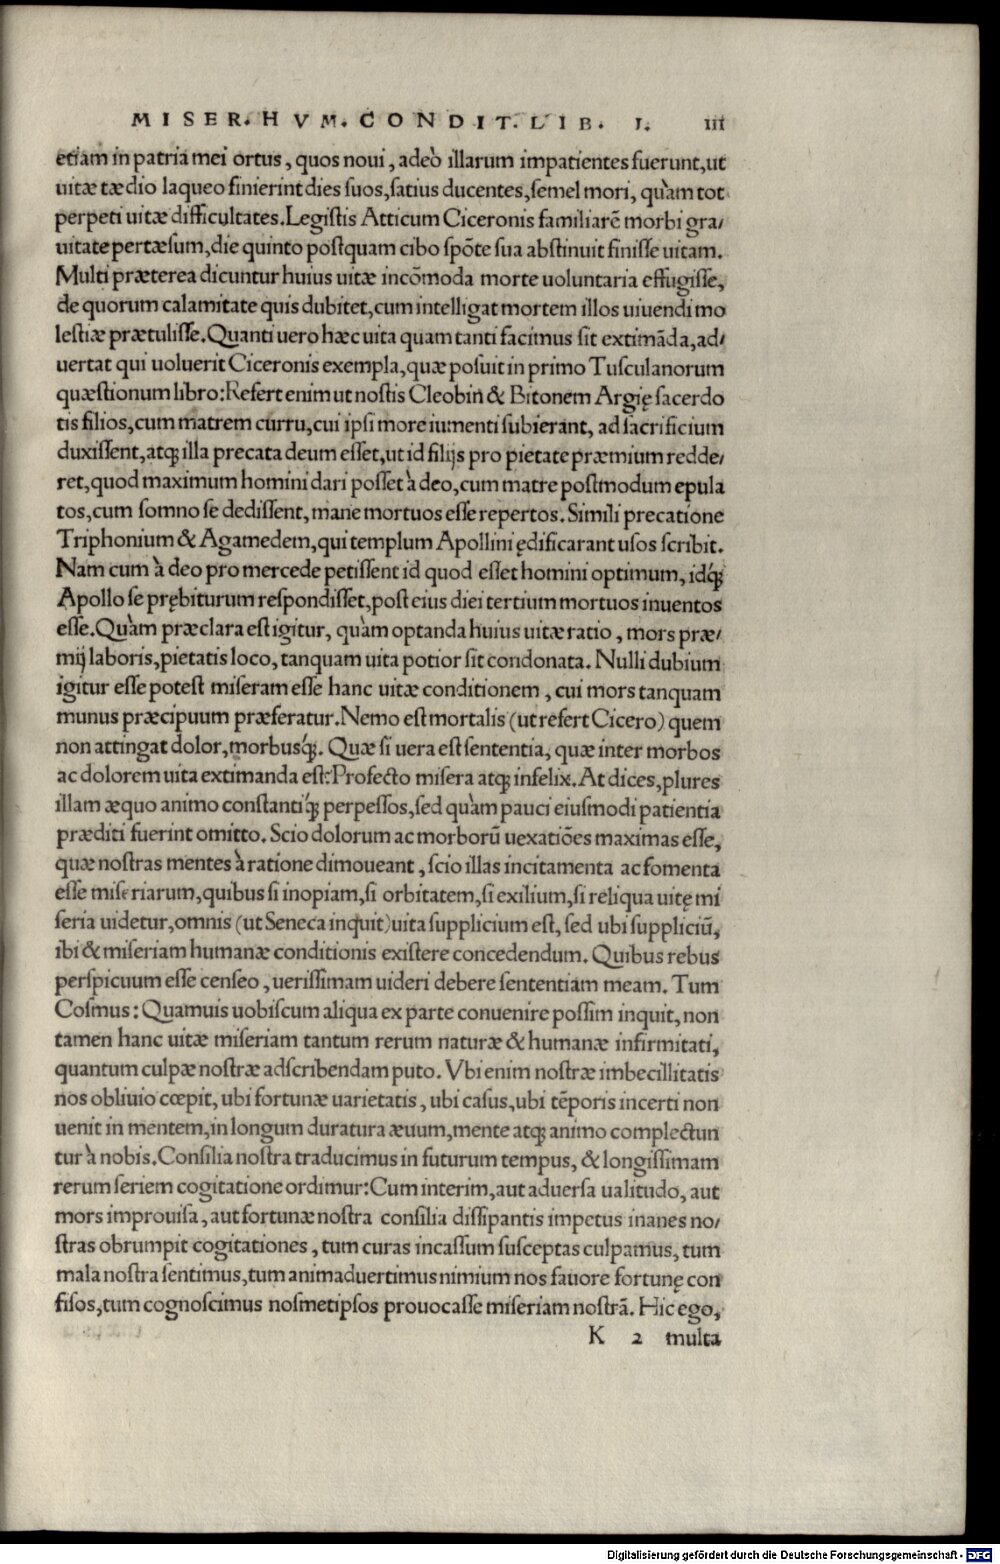 MISER. HVM. CONDIT. LIB. I. III
etiam in patria mei ortus, quos noui, adeò illarum impatientes fuerunt, ut
uitæ tædio laqueo finierint dies suos, satius ducentes, semel mori, quàm tot
perpeti uitæ difficultates. Legistis Atticum Ciceronis familiarẽ morbi gra/
uitate pertæsum, die quinto postquam cibo spõte sua abstinuit finisse uitam.
Multi præterea dicuntur huius uitæ incõmoda morte uoluntaria effugisse,
de quorum calamitate quis dubitet, cum intelligat mortem illos uiuendi mo
lestiæ prætulisse. Quanti uero hæc uita quam tanti facimus sit extimãda, ad/
uertat qui uoluerit Ciceronis exempla, quæ posuit in primo Tusculanorum
quæstionum libro: Refert enim ut nostis Cleobin & Bitonem Argię sacerdo
tis filios, cum matrem curru, cui ipsi more iumenti subierant, ad sacrificium
duxissent, atq; illa precata deum esset, ut id filijs pro pietate præmium redde/
ret, quod maximum homini dari posset à deo, cum matre postmodum epula
tos, cum somno se dedissent, mane mortuos esse repertos. Simili precatione
Triphonium & Agamedem, qui templum Apollini ędificarant usos scribit.
Nam cum à deo pro mercede petissent id quod esset homini optimum, idq́;
Apollo se prębiturum respondisset, post eius diei tertium mortuos inuentos
esse. Quàm præclara est igitur, quàm optanda huius uitæ ratio, mors præ/
mij laboris, pietatis loco, tanquam uita potior sit condonata. Nulli dubium
igitur esse potest miseram esse hanc uitæ conditionem, cui mors tanquam
munus præcipuum præferatur. Nemo est mortalis (ut refert Cicero) quem
non attingat dolor, morbusq́;. Quæ si uera est sententia, quæ inter morbos
ac dolorem uita extimanda est: Profecto misera atq; infelix. At dices, plures
illam æquo animo constantiq́; perpessos, sed quàm pauci eiusmodi patientia
præditi fuerint omitto. Scio dolorum ac morborũ uexatiões maximas esse,
quæ nostras mentes à ratione dimoueant, scio illas incitamenta ac fomenta
esse miseriarum, quibus si inopiam, si orbitatem, si exilium, si reliqua uitę mi
seria uidetur, omnis (ut Seneca inquit) uita supplicium est, sed ubi suppliciũ,
ibi & miseriam humanæ conditionis existere concedendum. Quibus rebus
perspicuum esse censeo, uerissimam uideri debere sententiam meam. Tum
Cosmus: Quamuis uobiscum aliqua ex parte conuenire possim inquit, non
tamen hanc uitæ miseriam tantum rerum naturæ & humanæ infirmitati,
quantum culpæ nostræ adscribendam puto. Vbi enim nostræ imbecillitatis
nos obliuio cœpit, ubi fortunæ uarietatis, ubi casus, ubi tẽporis incerti non
uenit in mentem, in longum duratura æuum, mente atq; animo complectun
tur à nobis. Consilia nostra traducimus in futurum tempus, & longissimam
rerum seriem cogitatione ordimur: Cum interim, aut aduersa ualitudo, aut
mors improuisa, aut fortunæ nostra consilia dissipantis impetus inanes no/
stras obrumpit cogitationes, tum curas incassum susceptas culpamus, tum
mala nostra sentimus, tum animaduertimus nimium nos fauore fortunę con
fisos, tum cognoscimus nosmetipsos prouocasse miseriam nostrã. Hic ego,
K 2 multa
Digitalisierung gefördert durch die Deutsche Forschungsgemeinschaft - DFG